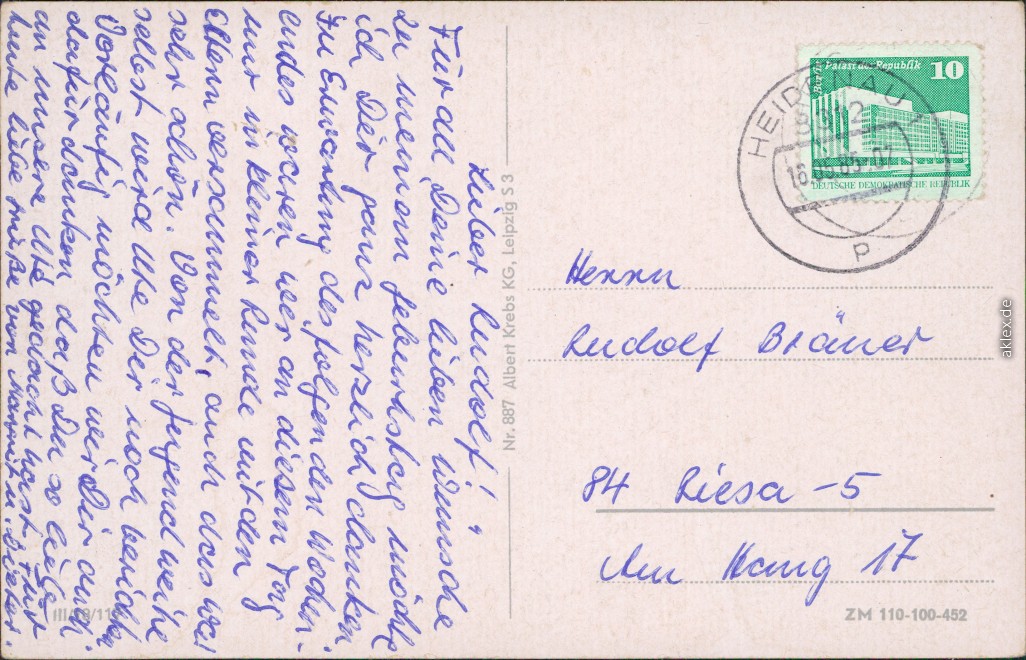 Lieber Rudolf!
Für all Deine lieben Wünsche
zu meinem Geburtstag möchte
ich Dir ganz herzlich danken.
In Erwartung des folgenden Wochen-
endes waren wir an diesem Tag
nur in kleiner Runde mit den
Eltern versammelt, auch das war
sehr schön. Von der Jugendweihe
selbst wird Ute Dir noch berichten.
Vorläufig möchten wir Dir auch
dafür danken, daß Du so lieb
an unsere Ute gedacht hast. Für
heute liebe Grüße von u. Dieter.
Nr. 887 Albert Krebs KG, Leipzig S 3
III/18/11
Berlin, Palast der Republik
10
DEUTSCHE DEMOKRATISCHE REPUBLIK
HEIDENAU 1
8312
16.05.85-07
p
Herrn
Rudolf Bräuer
84 Riesa -5
Am Hang 17
ZM 110-100-452
aklex.de